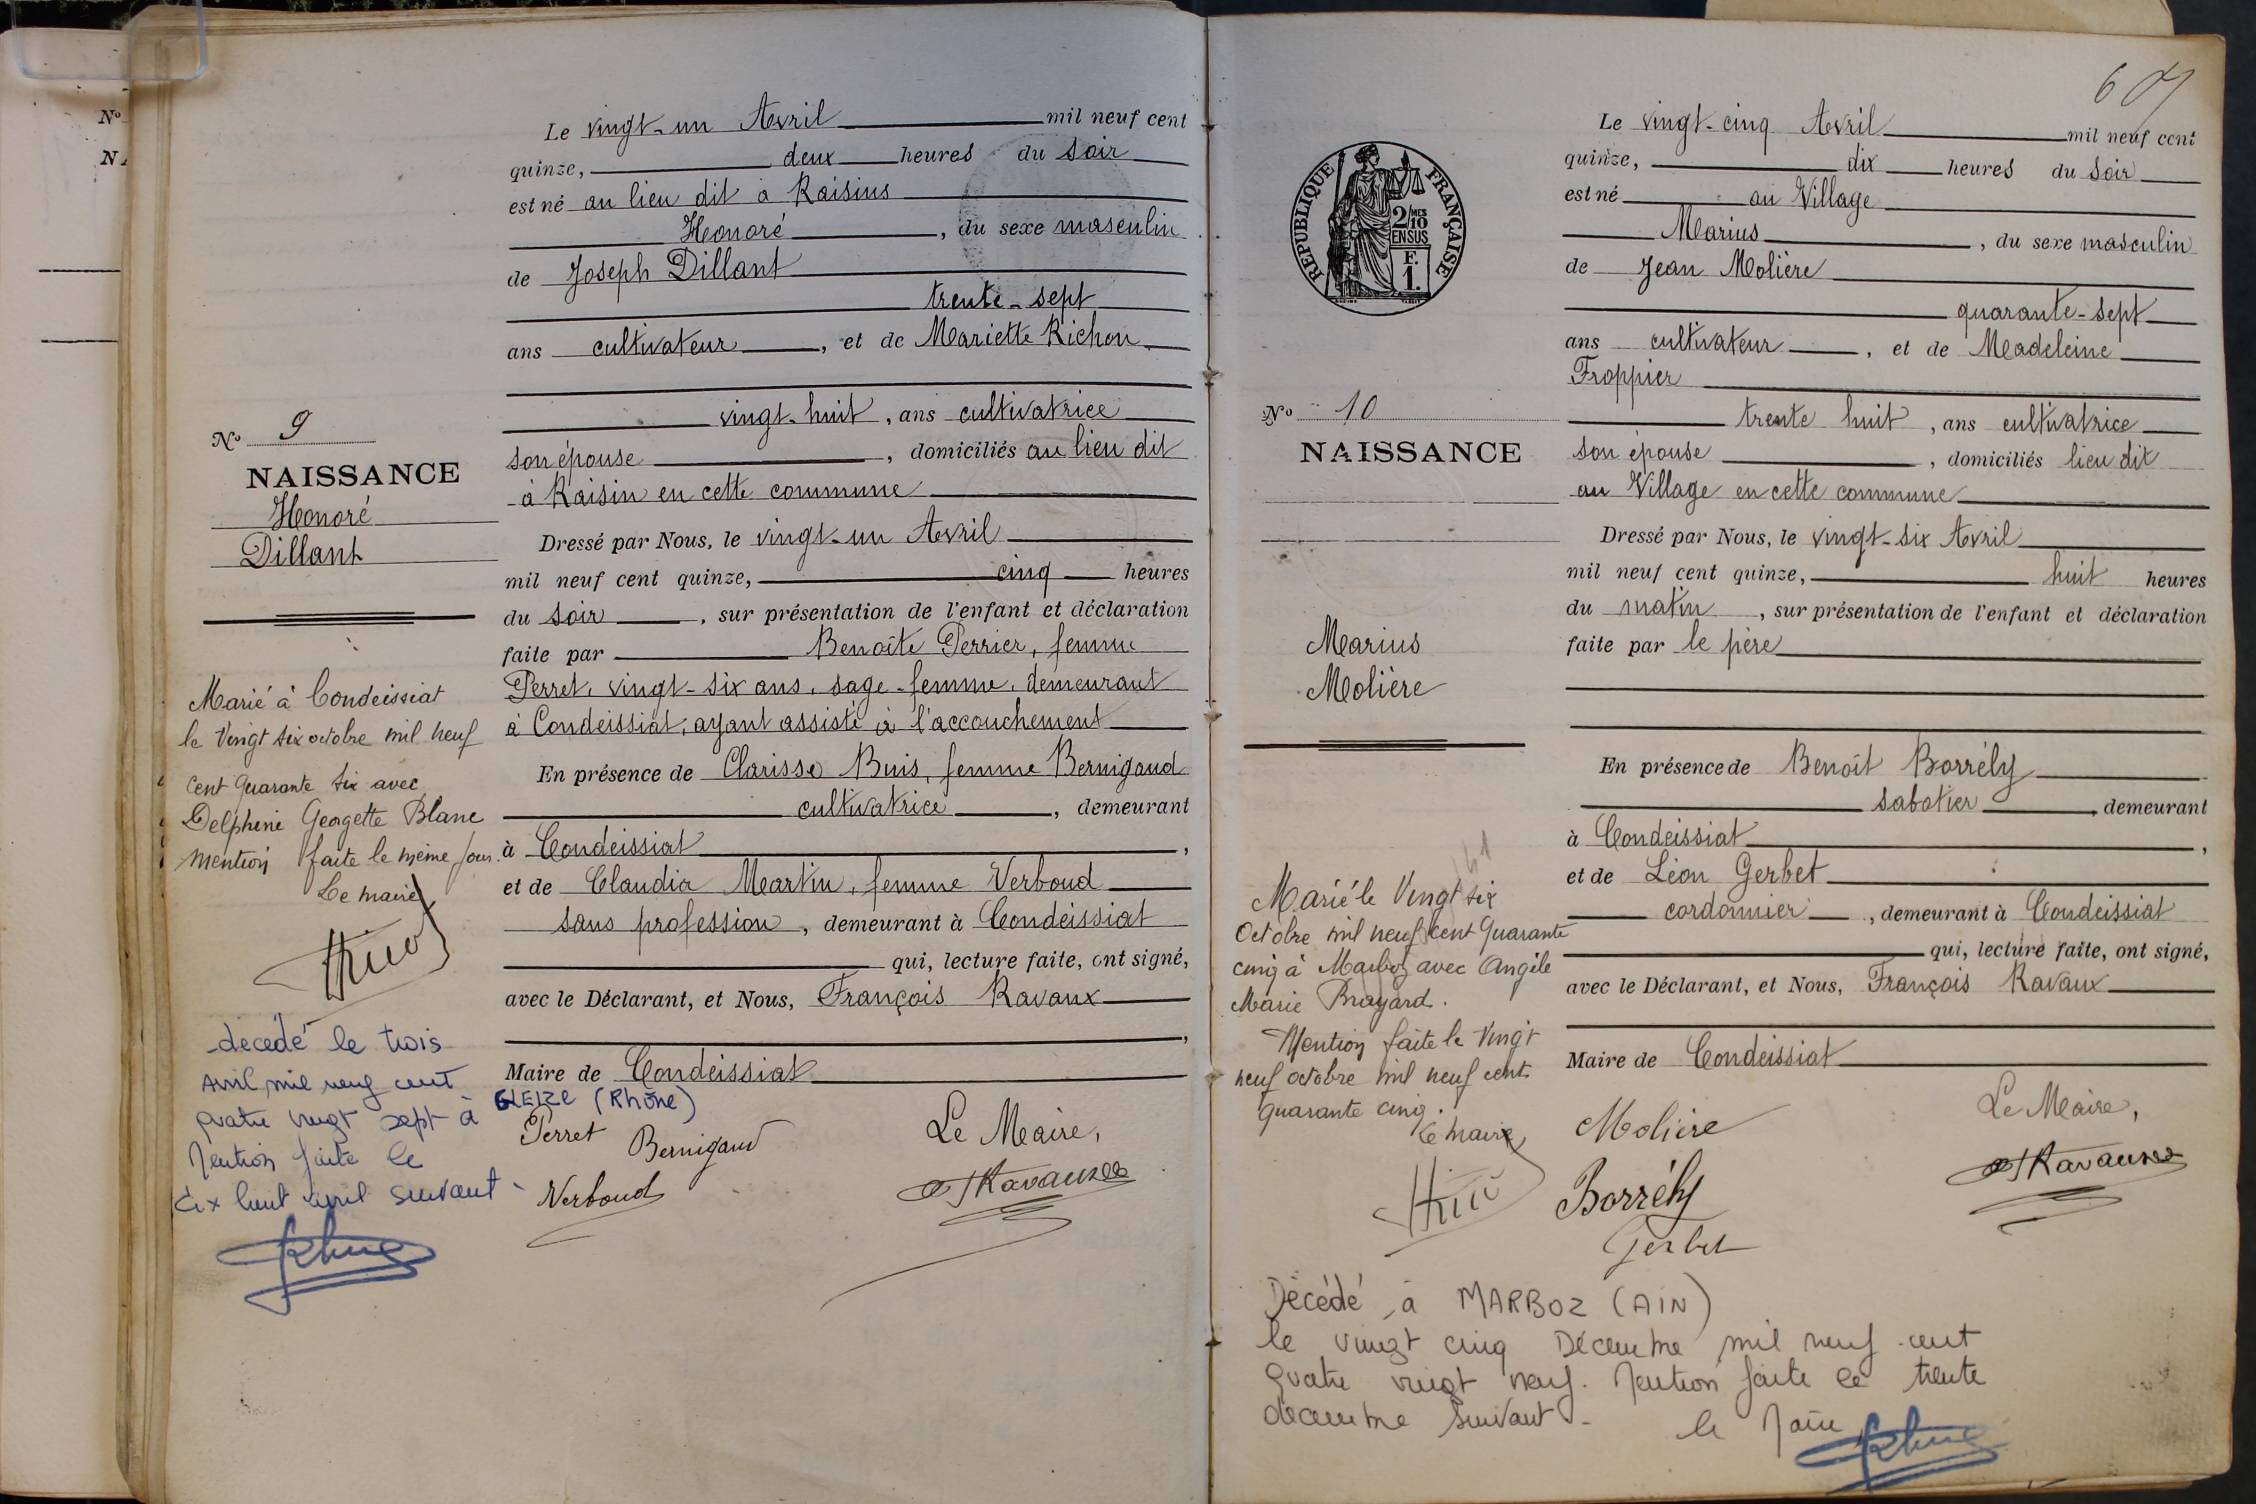 Nº
N
Le vingt-un Avril mil neuf cent
quinze, deux heures du soir
est né au lieu dit à Raisins
Honoré, du sexe masculin
de Joseph Dillant
trente-sept
ans cultivateur, et de Mariette Richon
vingt-huit, ans cultivatrice
son épouse, domiciliés au lieu dit
à Raisin en cette commune
Dressé par Nous, le vingt-un Avril
mil neuf cent quinze, cinq heures
du soir, sur présentation de l'enfant et déclaration
faite par Benoîte Perrier, femme
Perret, vingt-six ans, sage-femme, demeurant
à Condeissiat, ayant assisté à l'accouchement
En présence de Clarisse Buis, femme Bernigaud
cultivatrice, demeurant
à Condeissiat,
et de Claudia Martin, femme Verboud
sans profession, demeurant à Condeissiat
qui, lecture faite, ont signé,
avec le Déclarant, et Nous, François Ravaux
,
Maire de Condeissiat
Perret Bernigaud Le Maire,
Verboud Ravaux
Nº 9
NAISSANCE
Honoré
Dillant
Marié à Condeissiat
le Vingt six octobre mil neuf
cent quarante six avec
Delphine Georgette Blanc
mention faite le même jour.
Le maire
décédé le trois
avril mil neuf cent
quatre vingt sept à GLEIZE (Rhône)
Mention faite le
dix huit avril suivant -
607
Le vingt-cinq Avril mil neuf cent
quinze, dix heures du soir
est né au Village
Marius, du sexe masculin
de Jean Molière
quarante-sept
ans cultivateur, et de Madeleine
Froppier
trente huit, ans cultivatrice
son épouse, domiciliés lieu dit
au Village en cette commune
Dressé par Nous, le vingt-six Avril
mil neuf cent quinze, huit heures
du matin, sur présentation de l'enfant et déclaration
faite par le père
En présence de Benoît Borrély
sabotier, demeurant
à Condeissiat,
et de Léon Gerbet
cordonnier, demeurant à Condeissiat
qui, lecture faite, ont signé,
avec le Déclarant, et Nous, François Ravaux
Maire de Condeissiat
Molière Le Maire,
Borrély Ravaux
Gerbet
RÉPUBLIQUE FRANÇAISE
2/10 MES
EN SUS
F.
1.
Nº 10
NAISSANCE
Marius
Molière
Marié le Vingt six
Octobre mil neuf cent quarante
cinq à Marboz avec Angèle
Marie Brayard.
Mention faite le Vingt
neuf octobre mil neuf cent
quarante cinq.
Le maire
Décédé à MARBOZ (AIN)
le vingt cinq Décembre mil neuf cent
quatre vingt neuf. Mention faite le trente
décembre suivant -
le Maire